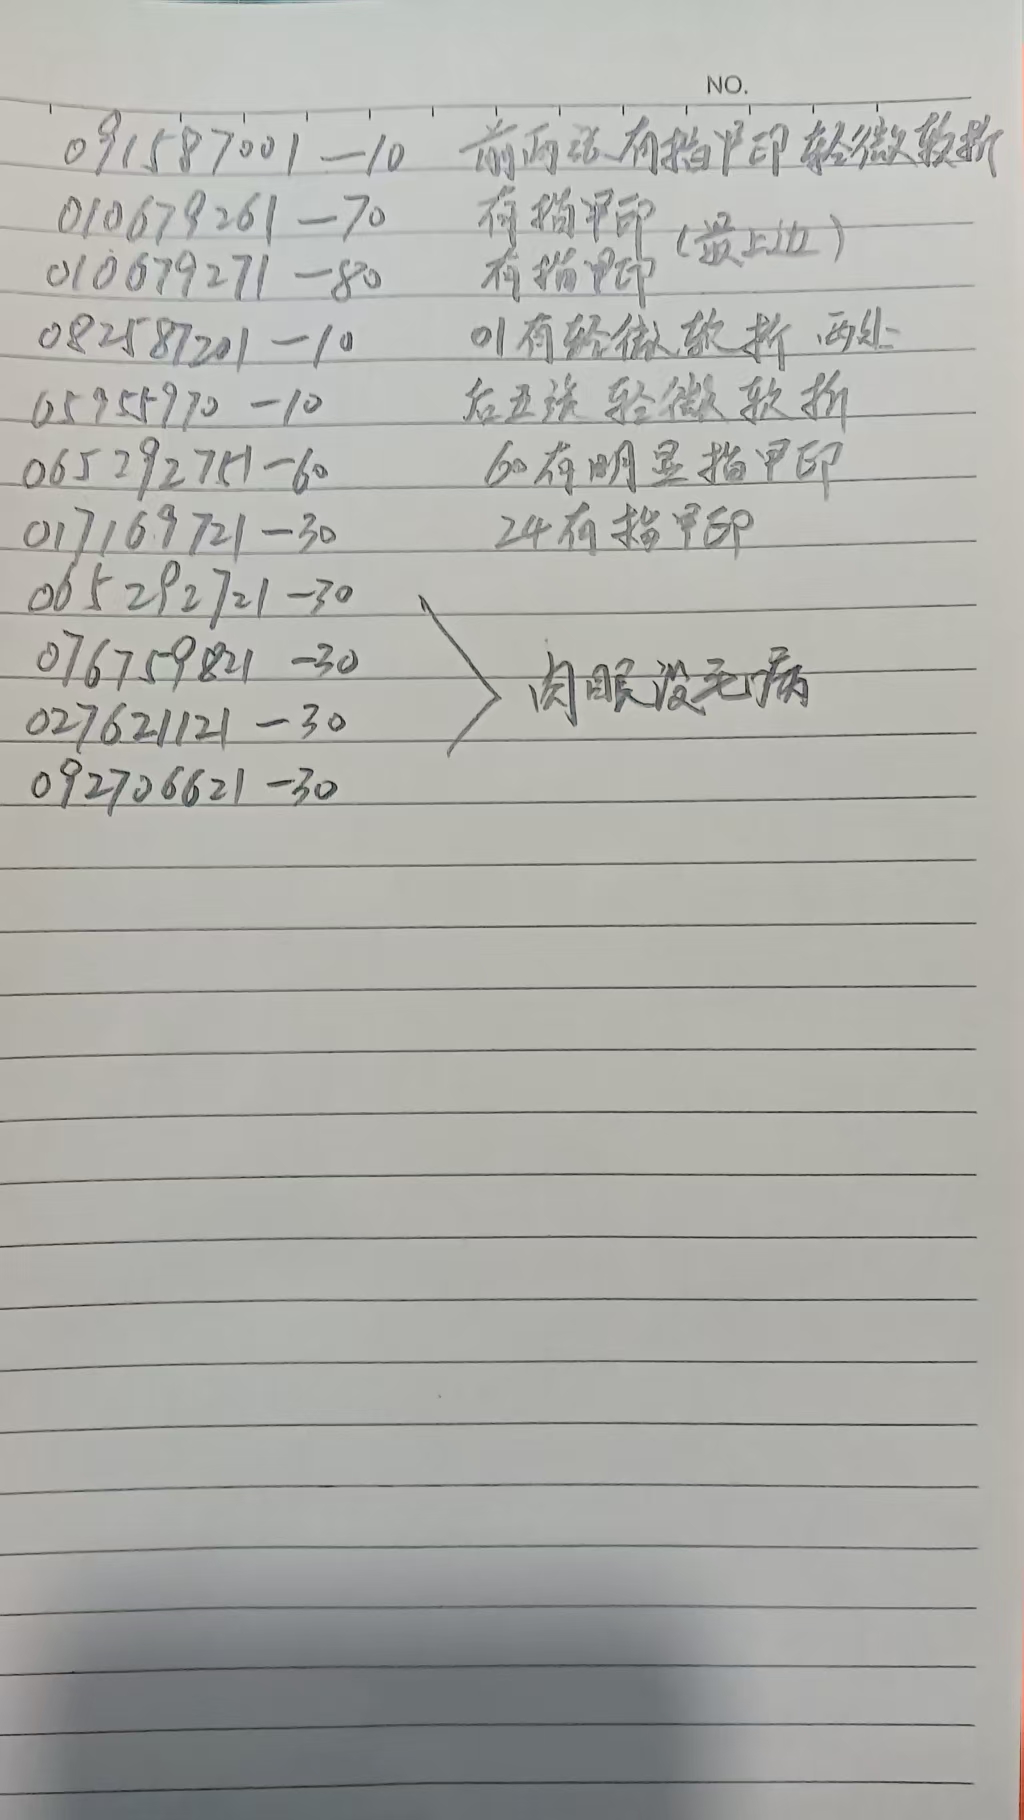 NO.
091587001—10 前两张有指甲印轻微软折
010679261—70 有指甲印
(最上边)
010679271—80 有指甲印
082587201—10 01有轻微软折 两处
05955970—10 后五张轻微软折
065292751—60 60有明显指甲印
017169721—30 24有指甲印
065292721—30
076759821—30 肉眼没毛病
027621121—30
092706621—30